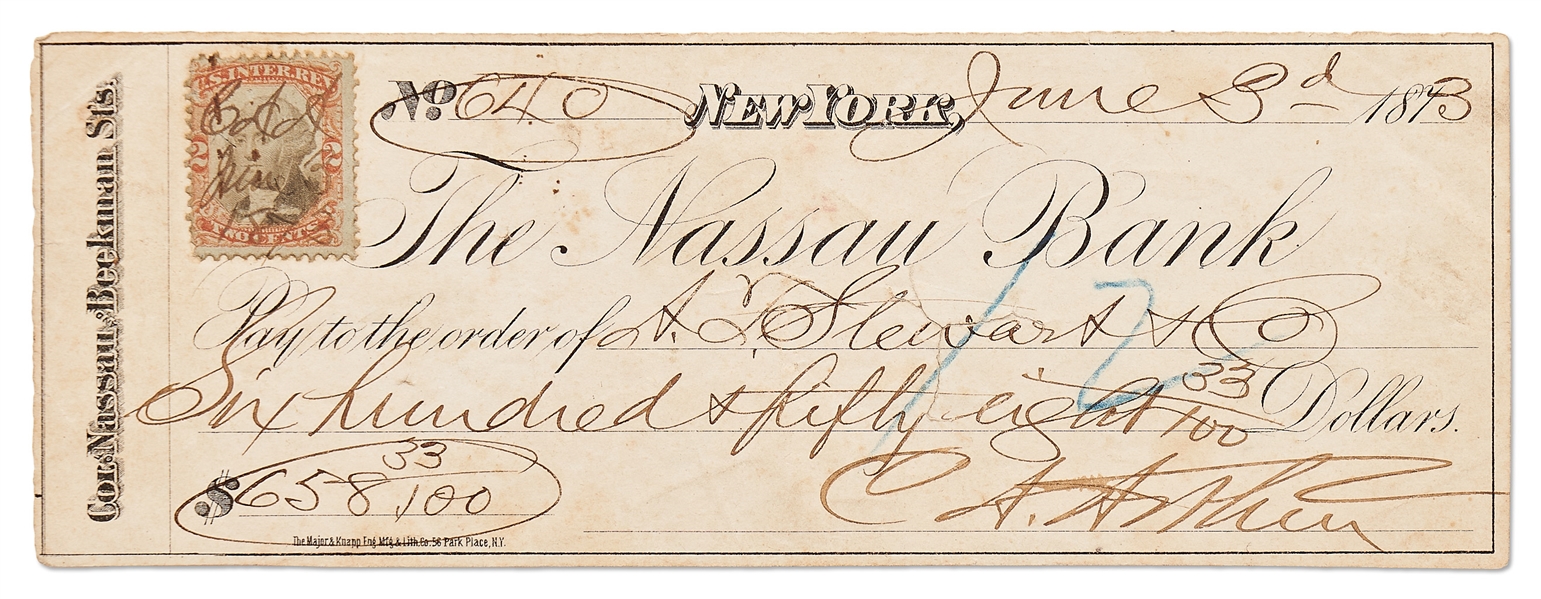 Cor. Nassau and Beekman Sts.
U.S. INTER. REV.
2 2
C.A.A
June 3
TWO CENTS
No 640 NEW YORK, June 3d 1873
The Nassau Bank
Pay to the order of A. T. Stewart & Co
Six hundred & fifty eight 33/100 Dollars.
$658 33/100
C. A. Arthur
12
The Major & Knapp Eng. Mfg. & Lith. Co. 56 Park Place, N.Y.